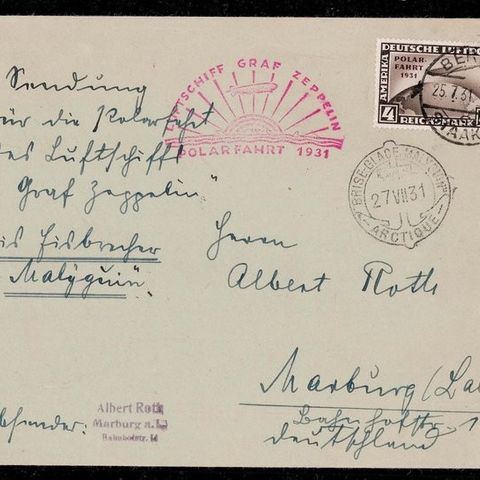 Sendung
für die Polarfahrt
des Luftschiffs
Graf Zeppelin"
bis Eisbrecher
Malÿguin".
LUFTSCHIFF GRAF ZEPPELIN
POLARFAHRT 1931
DEUTSCHE LUFTPO
AMERIKA
POLAR-
FAHRT
1931
4
REICHSMARK
BER
25.7.31
STAAK
BRISE-GLACE
27 VII 31
ARCTIQUE
Herrn
Albert Roth
Marburg (La
Bahnhofstr. 1
Deutschland
Absender:
Albert Roth
Marburg a.L.
Bahnhofstr. 14